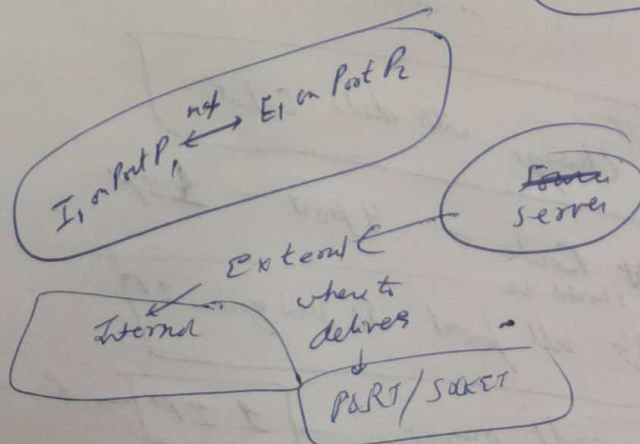 I₁ on Port P₁ ↔ E₁ on Port P₂
server
External
Internal
where to
deliver
PORT/SOCKET